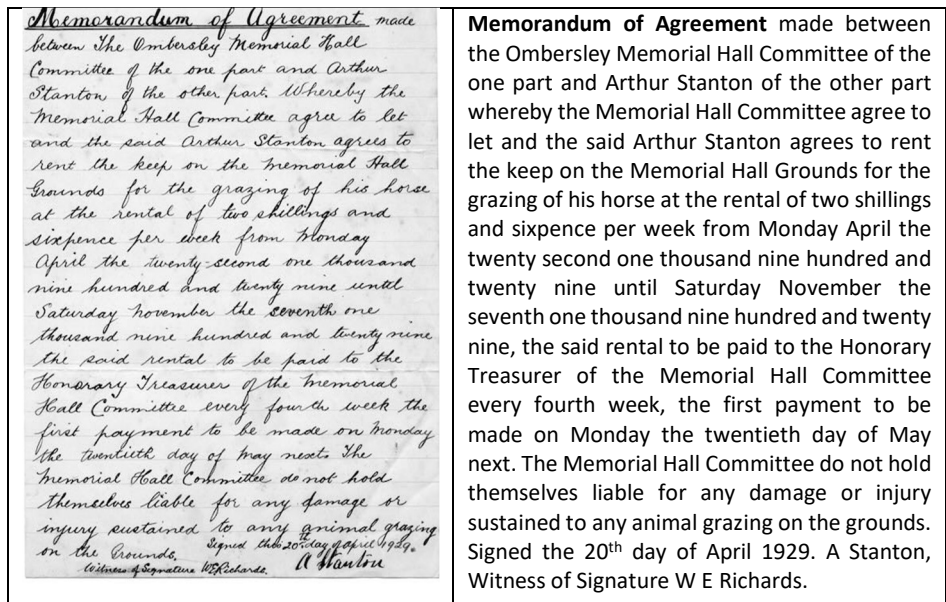 Memorandum of Agreement made
between The Ombersley Memorial Hall
Committee of the one part and Arthur
Stanton of the other part. Whereby the
Memorial Hall Committee agree to let
and the said Arthur Stanton agrees to
rent the keep on the Memorial Hall
Grounds for the grazing of his horse
at the rental of two shillings and
sixpence per week from Monday
April the twenty-second one thousand
nine hundred and twenty nine until
Saturday November the seventh one
thousand nine hundred and twenty nine
the said rental to be paid to the
Honorary Treasurer of the Memorial
Hall Committee every fourth week the
first payment to be made on Monday
the twentieth day of May next. The
Memorial Hall Committee do not hold
themselves liable for any damage or
injury sustained to any animal grazing
on the Grounds. Signed this 20th day of April 1929.
Witness of Signature W E Richards. A Stanton
Memorandum of Agreement made between
the Ombersley Memorial Hall Committee of the
one part and Arthur Stanton of the other part
whereby the Memorial Hall Committee agree to
let and the said Arthur Stanton agrees to rent
the keep on the Memorial Hall Grounds for the
grazing of his horse at the rental of two shillings
and sixpence per week from Monday April the
twenty second one thousand nine hundred and
twenty nine until Saturday November the
seventh one thousand nine hundred and twenty
nine, the said rental to be paid to the Honorary
Treasurer of the Memorial Hall Committee
every fourth week, the first payment to be
made on Monday the twentieth day of May
next. The Memorial Hall Committee do not hold
themselves liable for any damage or injury
sustained to any animal grazing on the grounds.
Signed the 20th day of April 1929. A Stanton,
Witness of Signature W E Richards.